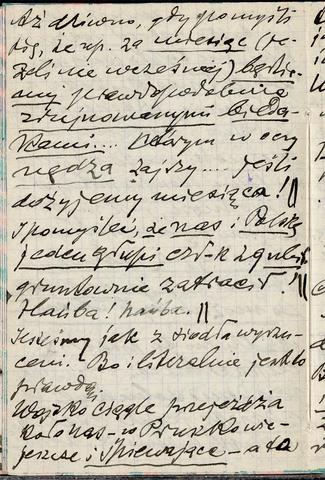 Aż dziwno, gdy pomyśli
się, że np. za miesiąc (je-
żeli nie wcześniej) będzie-
my prawdopodobnie
zrujnowanymi bieda-
kami... Którym w oczy
nędza zajrzy.... jeśli
dożyjemy miesiąca!
I pomyśleć, że nas i Polskę
jeden głupi czł-k zgubił
gruntownie zatracił!
Hańba! hańba.
Jesteśmy jak z siodła wyrzu-
ceni. Bo i literalnie jest to
prawdą.
Wojsko ciągle przejeżdża
koło nas – w Pruszkowie –
jeszcze i śpiewające – a to